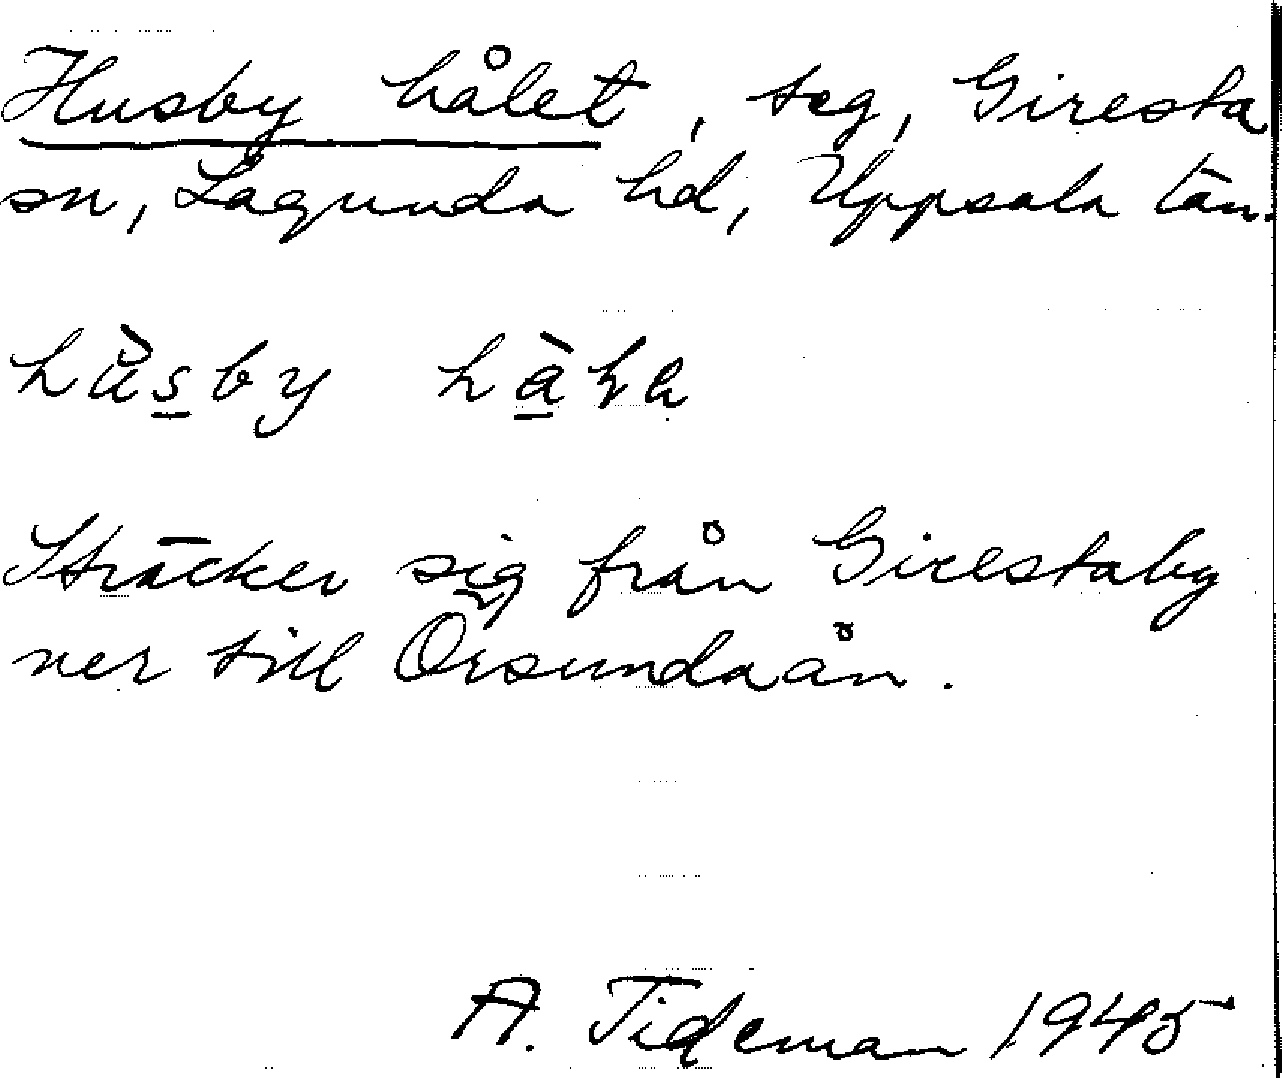 Husby hålet, teg, Giresta
sn, Lagunda hd, Uppsala län.
Sträcker sig från Girestaby
ner till Örsundaån.
A. Tideman 1945